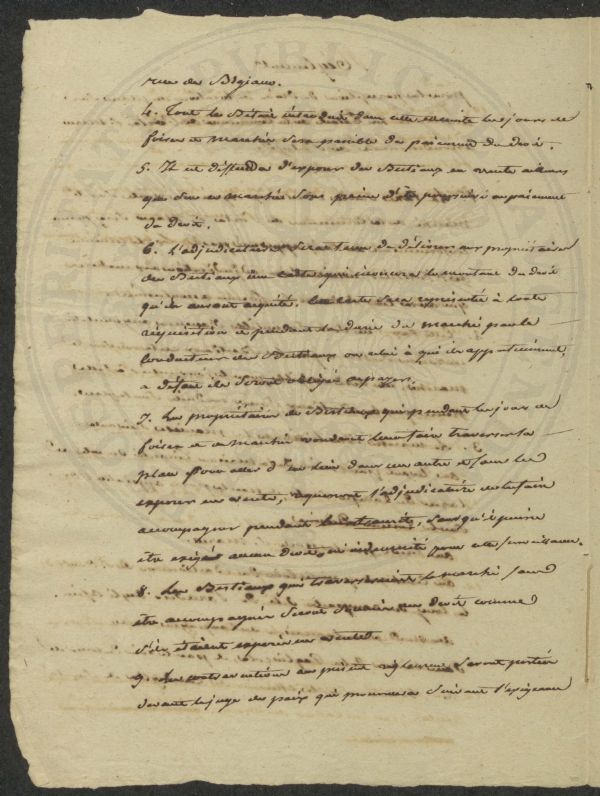 rue des Bigeaux.
4. Tout le Betail introduit dans cette enceinte les jours de
foires et marchés sera passible du paiement du droit.
5. Il est deffendu d'exposer des Bestiaux en vente ailleurs
que sur le marché sous peine d'être poursuivi au paiement
du droit.
6. L'adjudicataire sera tenu de délivrer aux propriétaires
des Bestiaux une carte qui énoncera le montant du droit
qu'ils auront acquitté. Cette carte sera représentée à toute
réquisition et pendant la durée du marché par le
Conducteur des Bestiaux ou celui à qui ils appartiennent,
a défaut ils seront obligés à payer.
7. Les propriétaires de Bestiaux qui pendant les jours de
foires et de marchés voudront leur faire traverser la
place pour aller d'un lieu dans un autre et sans les
exposer en vente, requerront l'adjudicataire de les faire
accompagner pendant la traversée, sans qu'il puisse
être exigé aucun droit ni indemnité pour cette
8. Les Bestiaux qui traverseraient le marché sans
être accompagnés seront soumis au droit comme
s'ils étaient exposés en vente.
9. Les contraventions au présent règlement seront portées
devant le juge de paix qui prononcera suivant l'exigence